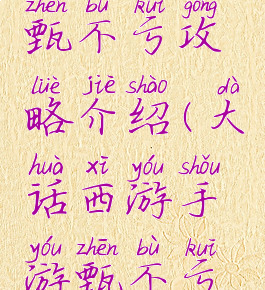 zhēn bù kuī gōng
甄不亏攻
lüè jiè shào dà
略介绍(大
huà xī yóu shǒu
话西游手
yóu zhēn bù kuī
游甄不亏